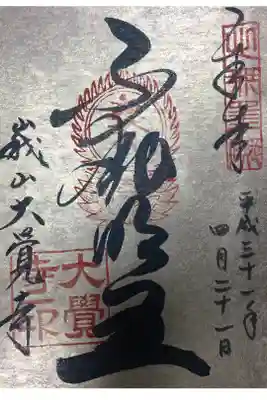 奉拝
平成三十一年
四月二十一日
五大明王
峩山大覺寺
大覺
寺印